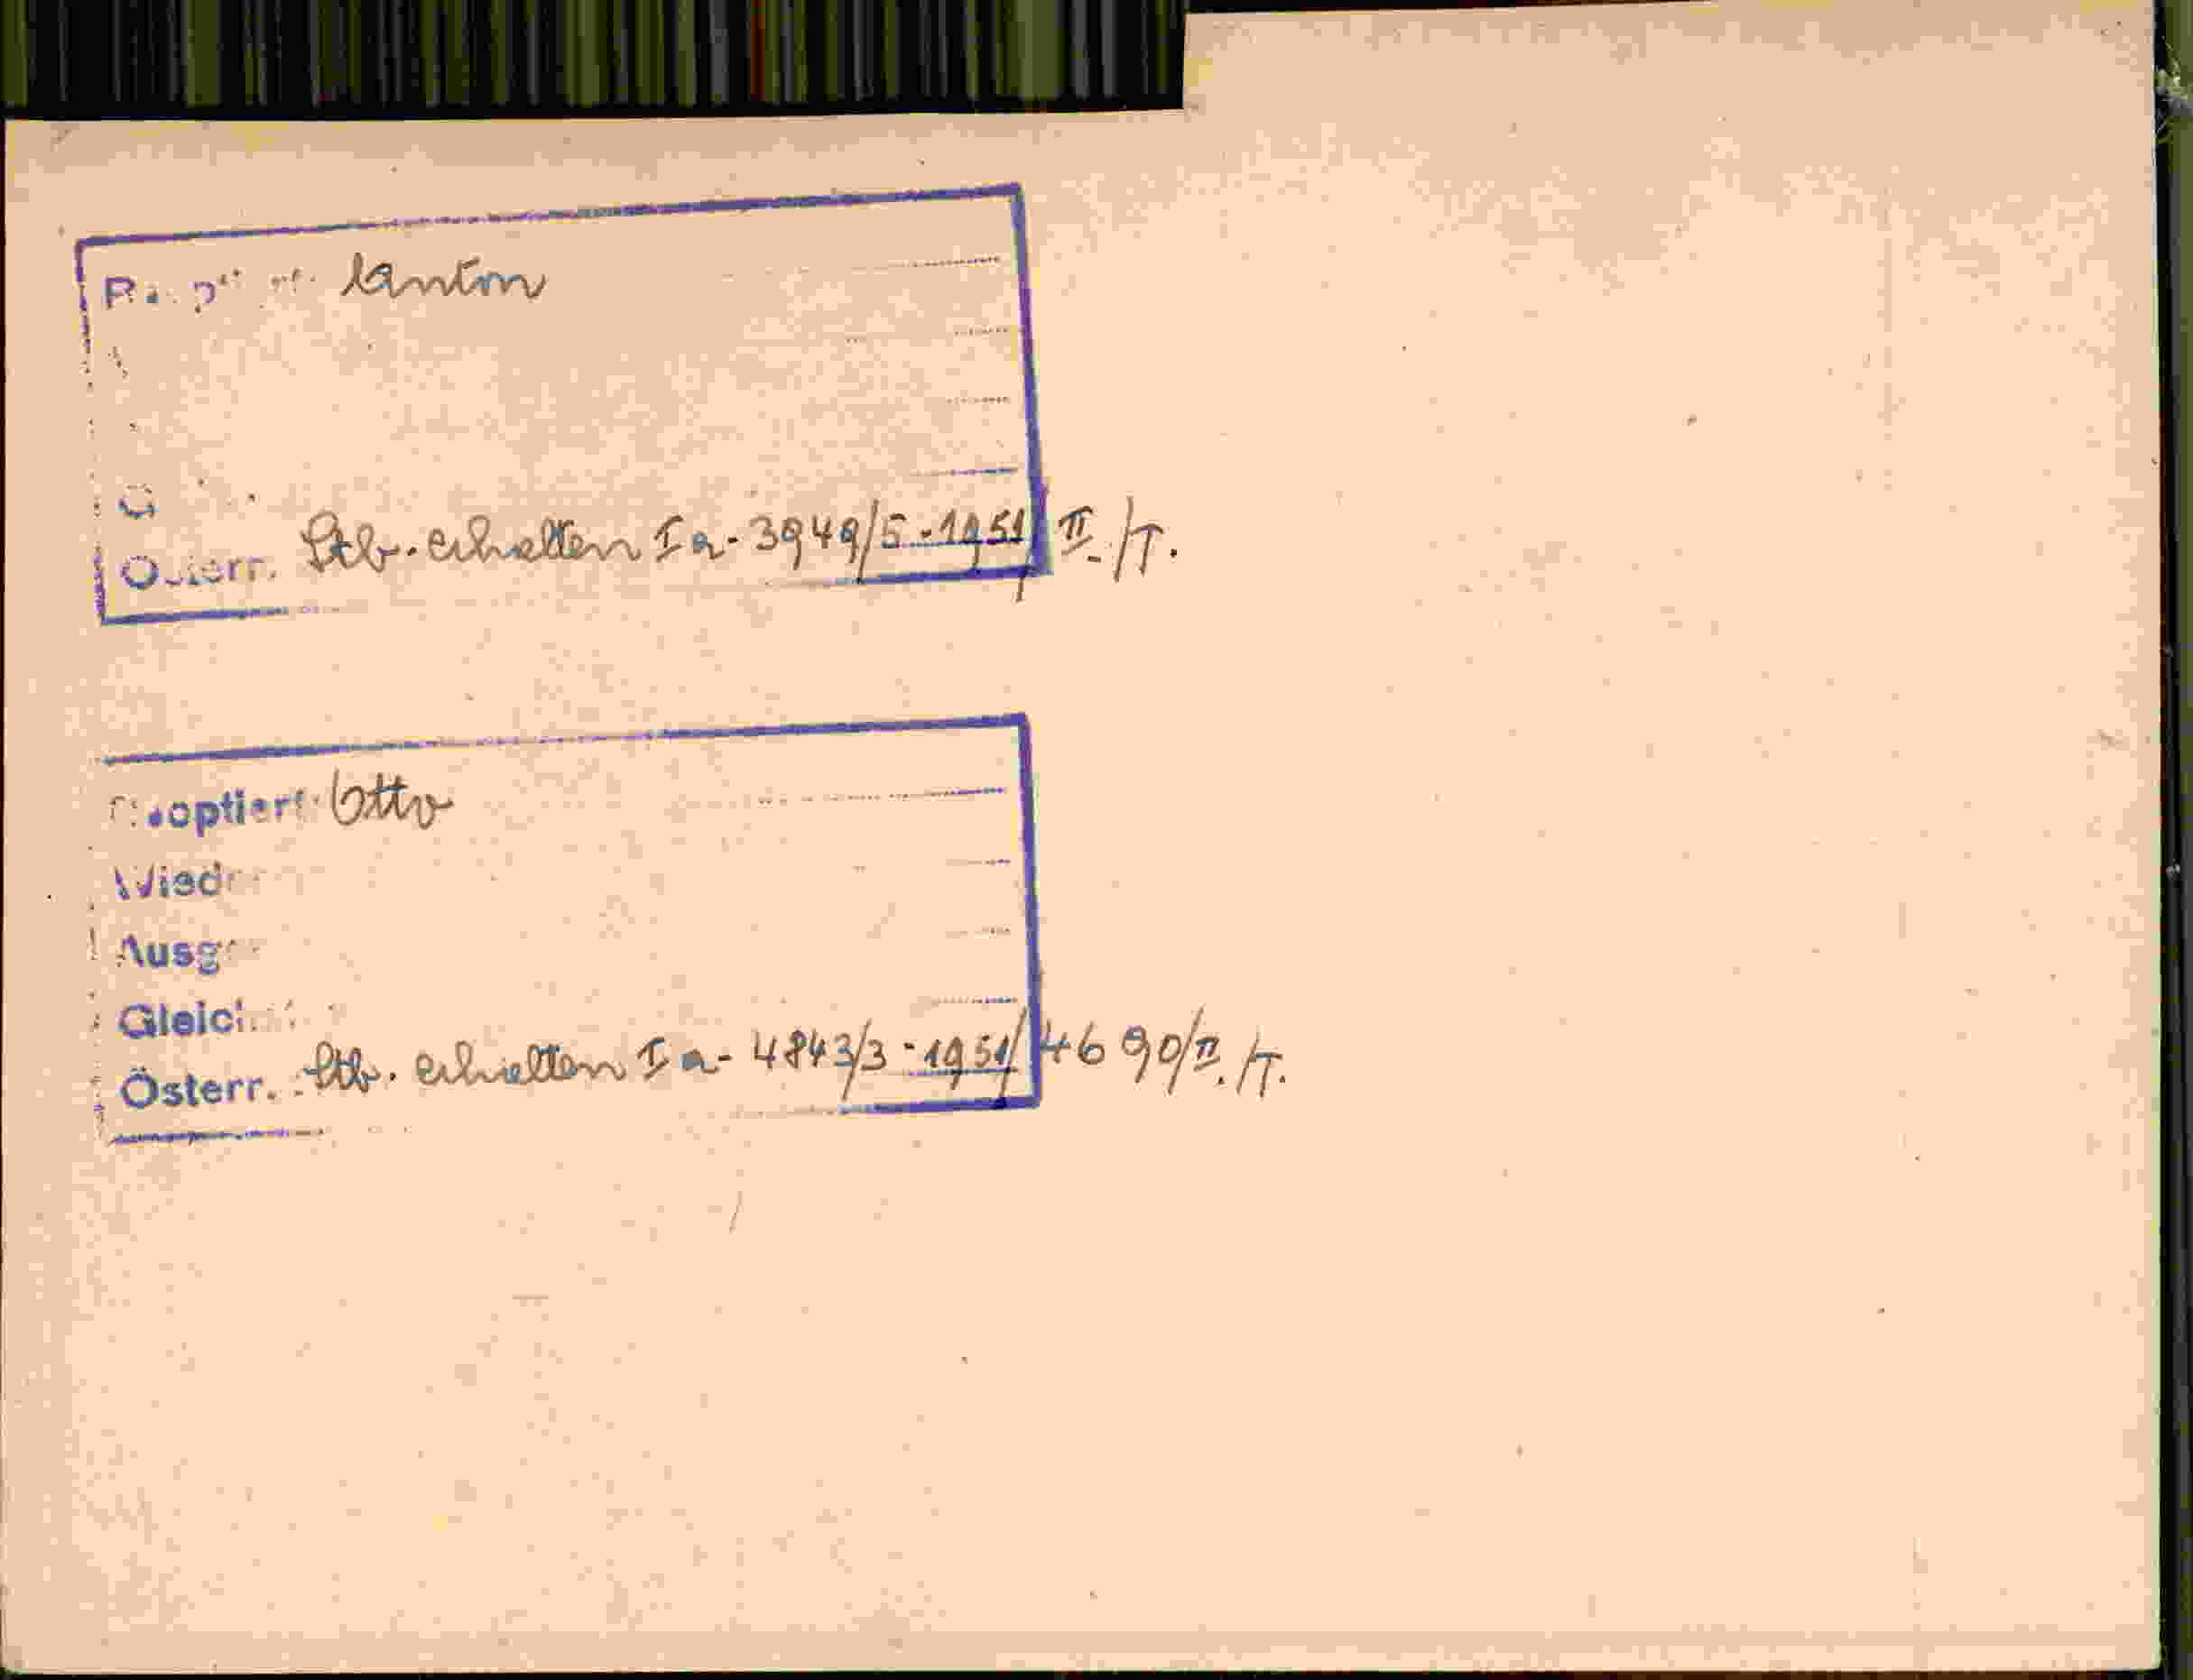 Anton
Österr. Stb. erhalten I a - 3949/5 - 1951/ II /T.
Reoptiert Otto
Wied
Ausg
Gleich
Österr. Stb. erhalten I a - 4843/3 - 1951/4690/II./T.